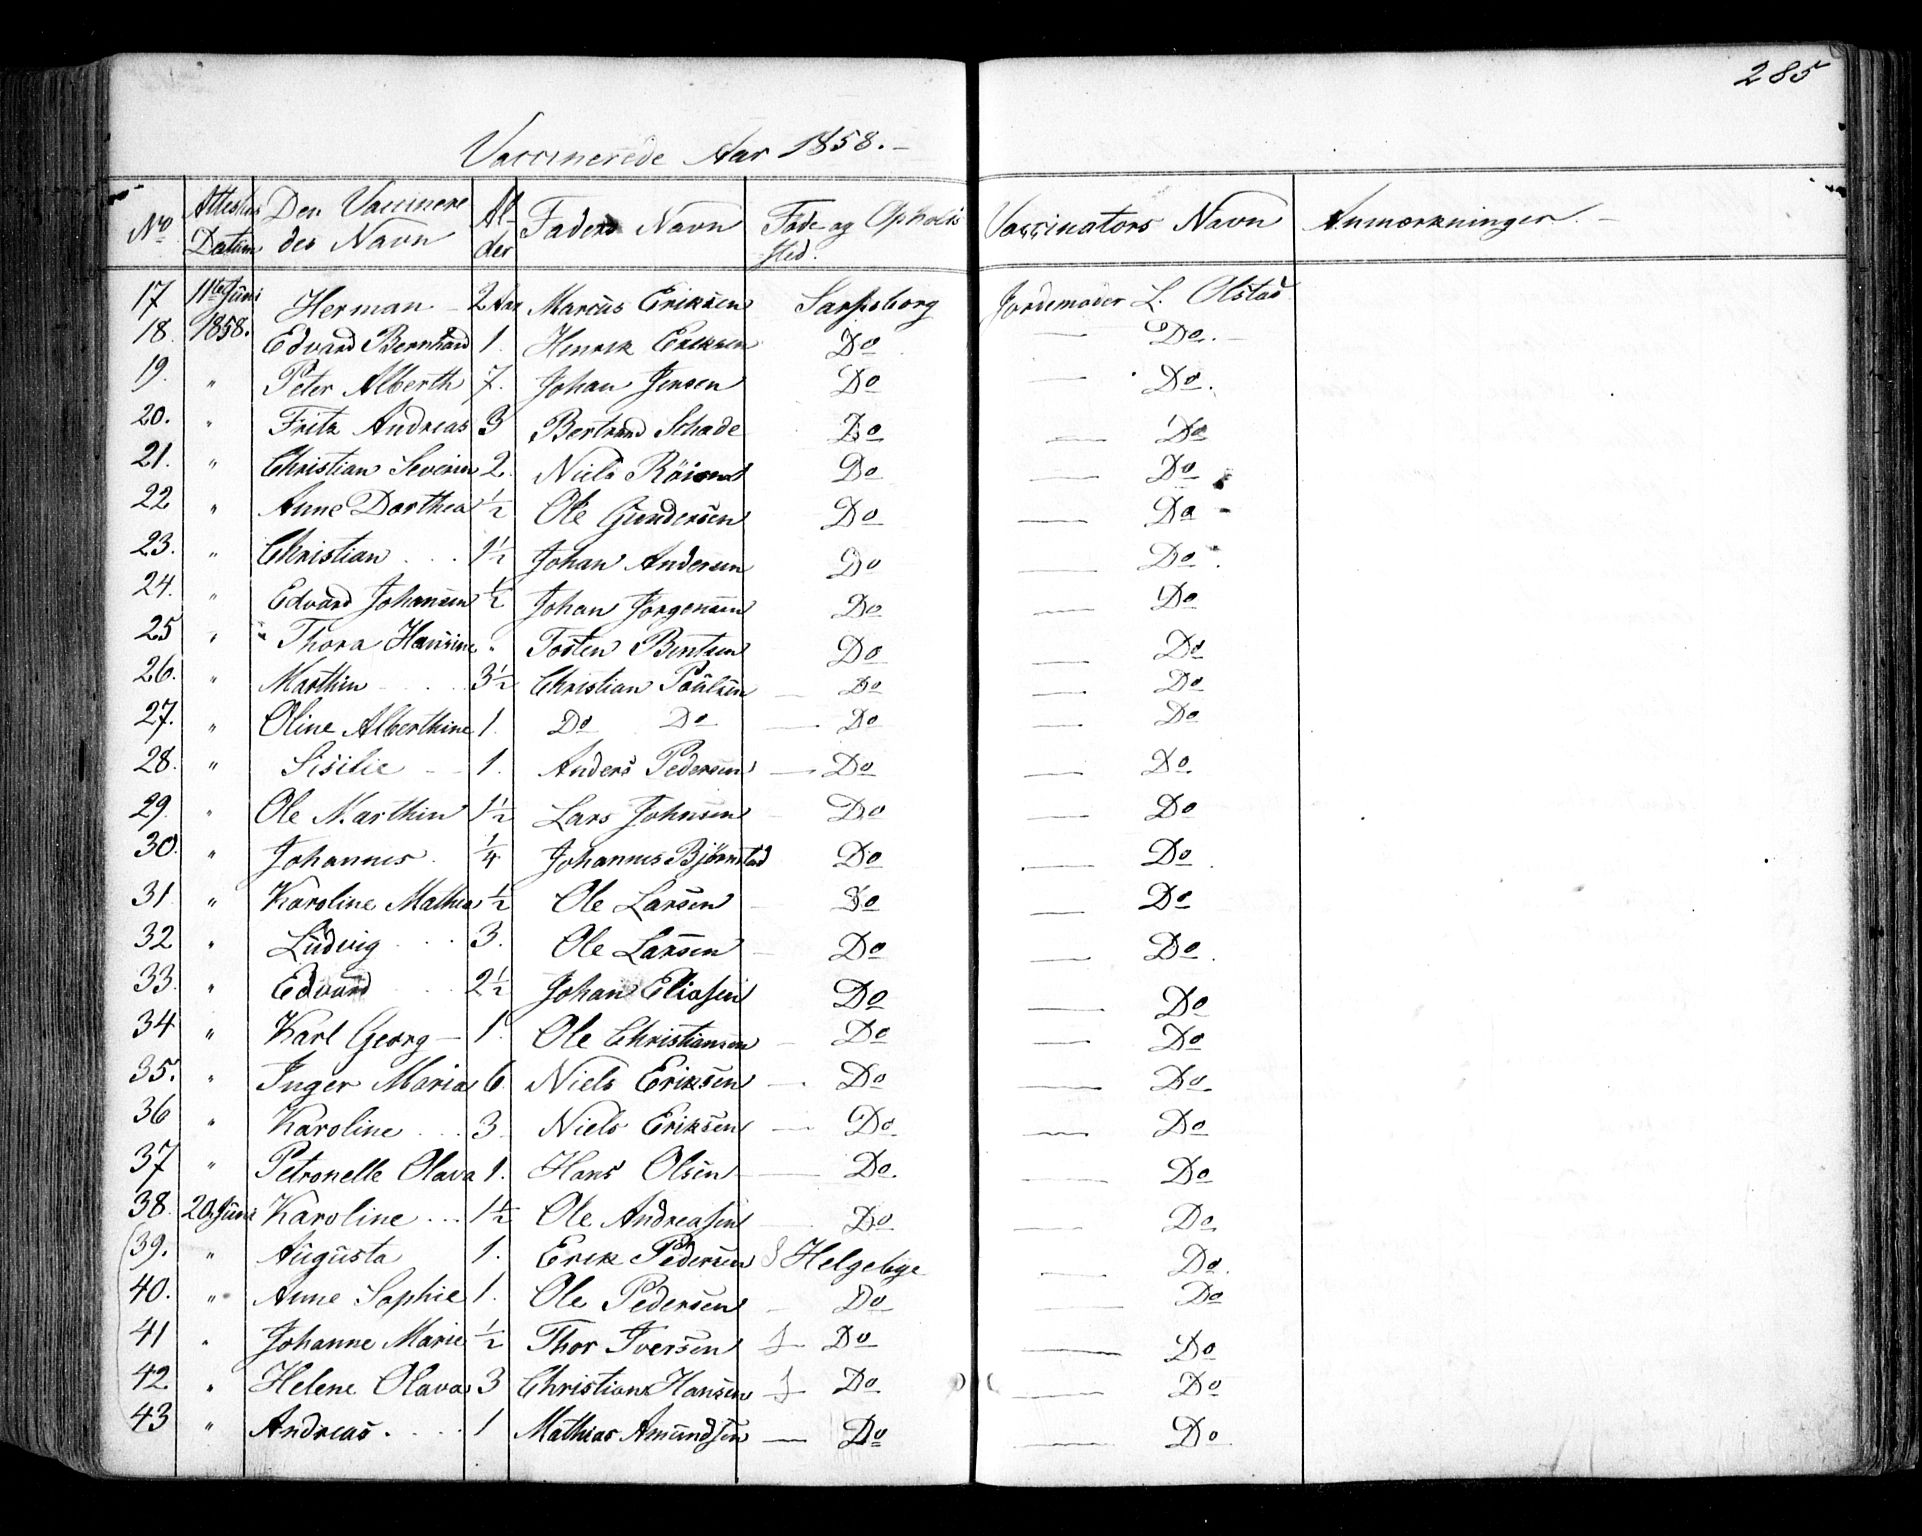 285
Vaccinerede Aar 1858. –
No Attestens Datum Den Vaccinere des Navn Al der Faders Navn Føde og Opholds sted. Vaccinators Navn Anmærkninger. –
17 11te Juni Herman – 2 Aar Marcus Eriksen Sarpsborg Jordemoder L. Olstad
18. 1858. Edvard Bernhard 1. Henrik Eriksen Do — Do. –
19. " Peter Alberth 7. Johan Jensen Do — Do.
20. " Fritz Andreas 3 Bertrand Schade Do — Do
21. " Christian Severin 2. Niels Do — Do
22 " Anne Dorthea ½ Ole Gundersen Do — Do
23. " Christian . . . 1½ Johan Andersen Do — Do
24. " Edvard Johansen ½ Johan Jørgensen Do — Do
25 " Thora Hansine " Tosten Bentsen Do — Do
26. " Marthin . . . 3½ Christian Poulsen — Do — Do
27. " Oline Alberthine 1. Do Do — Do — Do
28. " Sisilie – – 1. Anders Pedersen — Do — Do.
29. " Ole Marthin 1½ Lars Johnsen Do — Do
30. " Johannes. ¼ Johannes Bjørnstad Do — Do
31 " Karoline Mathea ½ Ole Larsen Do — Do
32 " Ludvig . . . 3. Ole Larsen Do — Do.
33. " Edvard . . . 2½ Johan Eliasen Do — Do
34 " Karl Georg – 1. Ole Christiansen – Do — Do
35. " Inger Maria 6. Niels Eriksen — Do — Do.
36 " Karoline . . . 3. Niels Eriksen — Do. — Do
37 " Petronelle Olava 1. Hans Olsen — Do. — Do
38. 20 Juni Karoline . . . 1½ Ole Andreasen — Do — Do
39. " Augusta 1. Erik Pedersen Helgebye — Do.
40. " Anne Sophie 1. Ole Pedersen – Do — Do
41 " Johanne Marie ½ Thor Iversen Do — Do
42 " Helene Olava 3 Christian Hansen Do — Do
43 " Andreas . . . 1 Mathias Amundsen — Do — Do